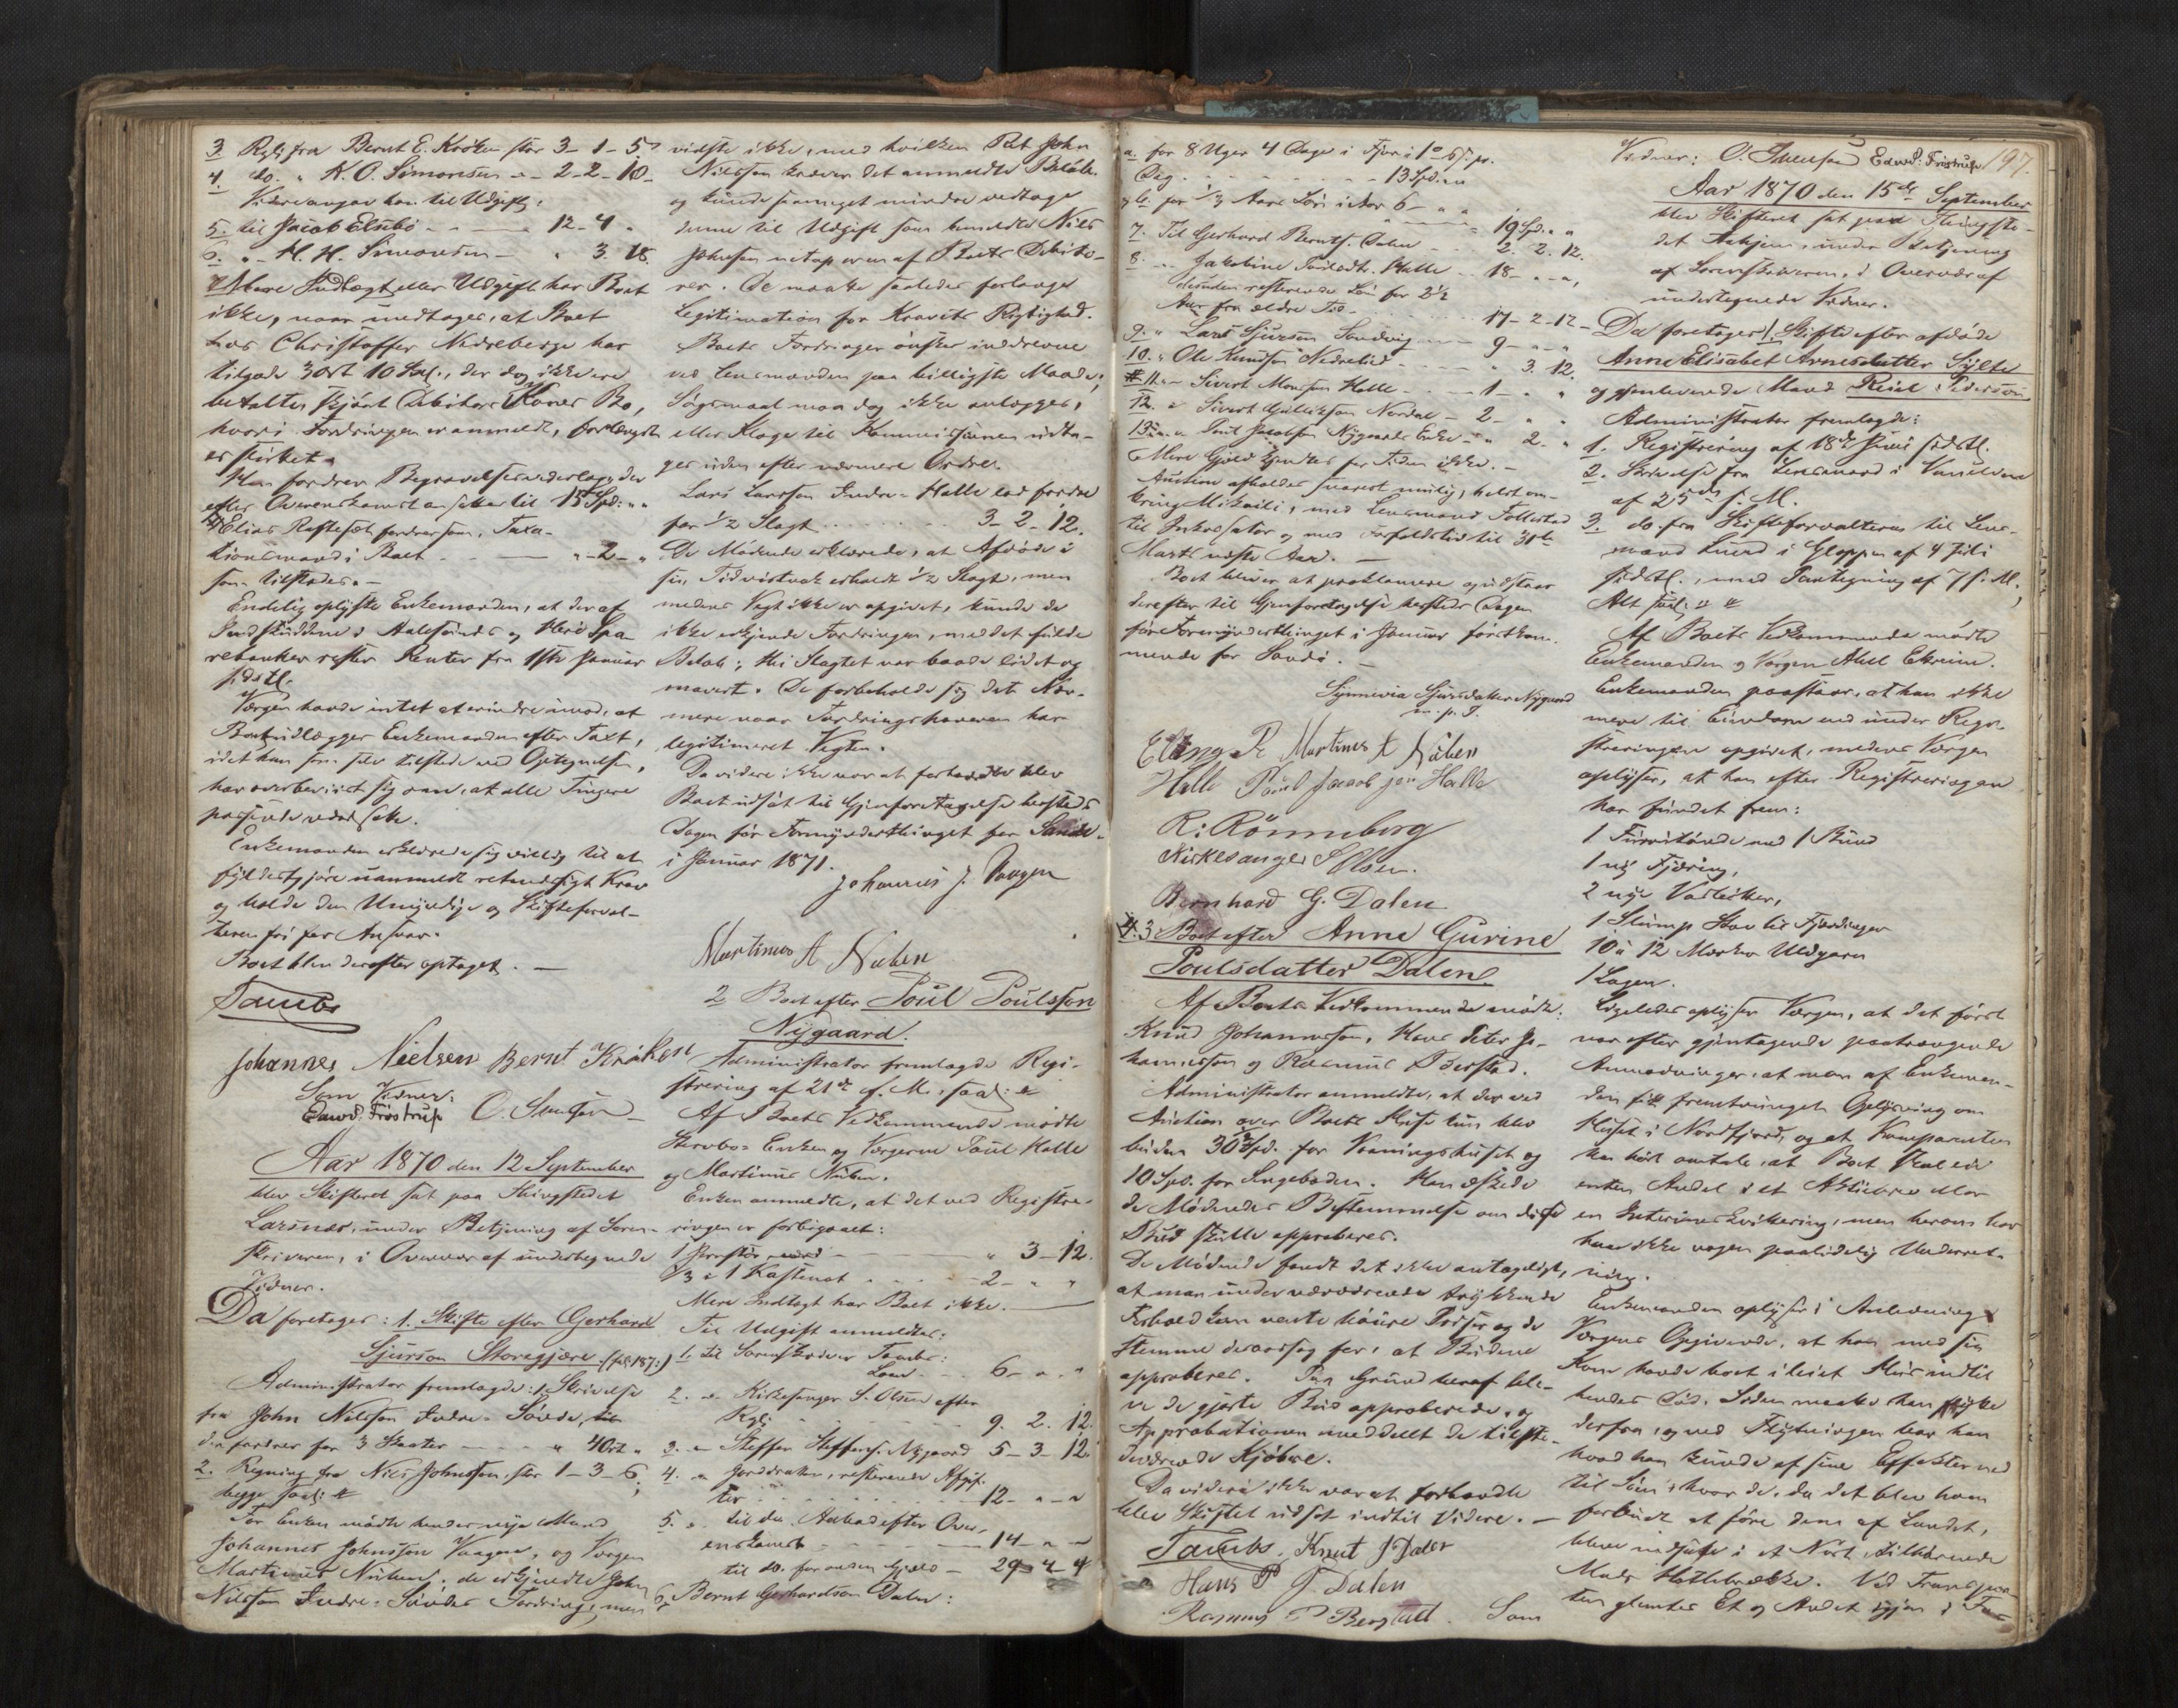 3 Regn. fra Bernt E. Kroken stor 3-1-5
4. do. " K. O. Simonsen - 2-2-10
Videre angav han til Udgift:
5. til Jacob Elsebø - 12-4 "
6. " H. H. Simonsen - " 3. 18.
Mere Indtægt eller Udgift har Boet
ikke, naar undtages, at Boet
hos Christoffer Nedreberge har
tilgode 3 ort 10 Skl., der dog ikke ere
betalte skjønt Debitors Kones Bo,
hvori Fordringen er anmeldt, forlængst
er sluttet.
Han fordrer Begravelsesvederlag, der
efter Overenskomst ansættes til 15 Spd: " "
Elias Røstesæt fordrer som Taxa-
tionsmand i Boet - " - 2 - "
som tilstodes. -
Endelig oplyste Enkemanden, at der af
Indskuddene i Aalesunds og Herø Spa-
rebanker rester Renter fra 1ste Januar
sidstl.
Værgen havde intet at erindre imod, at
Boet udlægges Enkemanden efter Taxt,
idet han som selv tilstede ved Optegnelsen,
har overbevist sig om, at alle Tingene
passende værdsatte.
Enkemanden erklærede sig villig til at
fyldestgjøre uanmeldt retmæssigt Krav
og holde den Umyndige og Skifteforval-
teren fri for Ansvar.
Boet blev derefter optaget. -
Daubs
Johannes Nielsen Bernt Kråken
Som Vidner:
Edwd. Fröstrup O. Svensen
Aar 1870 den 12 September
blev Skifteret sat paa Thingstedet
Larsnes, under Betjening af Soren-
skriveren, i Overvær af undertegnede
Vidner.
Da foretages: 1. Skifte efter Gerhard
Sjurson Storegjære. (fol. 187.)
Administrator fremlagde: 1. Skrivelse
fra John Nilsson Indre-Søvde, til
der fordrer for 3 Skatter - " 4 Ort "
2. Regning fra Nils Johnsson, stor 1-3-6;
begge saal: #
For Enken mødte hendes nye Mand
Johannes Johnsson Vaagen, og Værgen
Martinus Nuben, de erkjendte John
Nilsson Indre-Søvdes Fordring, men
vidste ikke, med hvilken Ret John
Nilsson kræver det anmeldte Beløb
og kunde saameget mindre vedtage
denne til Udgift som bemeldte Nils
Johnsen netop er en af Boets Debito-
rer. De maatte saaledes forlange
Legitimation for Kravets Rigtighed.
Boets Fordringer ønskes inddrevne
ved Lensmanden paa billigste Maade;
Søgsmaal maa dog ikke anlægges,
eller Klage til Kommissionen udta-
ges uden efter nærmere Ordre.
Lars Larsson Indre-Halle lod fordre
for ½ Slagt - 3-2-12.
De Mødende erklærede, at Afdøde i
sin Tid vistnok erholdt ½ Slagt, men
medens Vægt ikke er opgivet, kunde de
ikke erkjende Fordringen, med det fulde
Beløb; thi Slagtet var baade lidet og
magert. De forbeholdt sig det Nær-
mere naar Fordringshaveren har
legitimeret Vægten.
Da videre ikke var at forhandle blev
Boet udsat til Gjenforetagelse hersteds
Dagen før Formynderthinget for Sande
i Januar 1871.
Johannes J. Vaagen
Martinus A Nuben
2 Boet efter Poul Poulsson
Nygaard.
Administrator fremlagde Regi-
strering af 21de d. M. saal: a
Af Boets Vedkommende mødte
Sterbo-Enken og Værgerne Poul Halle
og Martinus Nuben.
Enken anmeldte, at det ved Registre-
ringen er forbigaaet:
1 - " 3-12.
1/3 i 1 Kastenot - 2 - " "
Mere Indtægt har Boet ikke.
Til Udgift anmeldtes:
1. til Sorenskriver Daubs:
Laan - 6 - " "
2. " Kirkesanger S. Olsen efter
Regn. - 9. 2. 12.
3. " Steffen Steffens. Nygaard 5-3-12.
4. " Jorddrotten, resterende Afgif-
ter - 12 - " - "
5. " til do. Aabod efter Over-
enskomst - 14 - " - "
til do. for anden Gjæld - 29-4-4
6. Bernt Gerhardson Dalen:
a. for 8 Uger 4 Dage i Fjor i 1 ort 6 s. pr.
Dag - 13 Spd. " "
b. for 1/3 Aars Løn i Aar 6 - " "
- 19 Spd. " "
7. Til Gerhard Bernts. Dalen - 2. 2. 12.
8. " Jakobine Poulsdt. Halle - 18 - " ",
desuden resterende Løn for 2½
Aar fra ældre Tid - 17-2-12-
9. " Lars Sjurson Sandvig - 9 - " "
10. " Ole Knudson Nedrelid - " 3. 12.
11. " Sivert Monsson Halle - 1 - " "
12. " Sivert Gullikson Nordal - 2 - " "
13. " Poul Jacobson Nygaards Enke - " 2. "
Mere Gjæld kjendtes for Tiden ikke. -
Auktion afholdes snarest mulig, helst om-
kring Mikaeli, med Lensmand Tollestad
til Inkassator og med Forfaldstid til 31te
Marts næste Aar. -
Boet bliver at proklamere og udstaar
derefter til Gjenforetagelse hersteds Dagen
før Formynderthinget i Januar førstkom-
mende for Sandø. -
Synnevia Sjursdatter Nygaard
m. p. P.
Elling R Martinus A Nuben
Halle Poul Jacobson Halle
R: Rønneberg
Kirkesanger S Olsen.
Bernhard G. Dalen
3 Boet efter Anne Gurine
Poulsdatter Dalen.
Af Boets Vedkommende mødte:
Knud Johannesson, Hans Peter Jo-
hannesson og Rasmus Berstad.
Administrator anmeldte, at der ved
Auktion over Boets Huse kun blev
buden 30 Spd. for Vaaningshuset og
10 Spd. for Engeboden. Han æskede
de Mødendes Bestemmelse om disse
Bud skulle approberes.
De Mødende fandt det ikke antageligt,
at man under nærværende trykkende
Forhold kan vente høiere Priser og de
stemme derfor for, at Budene
approberes. Paa Grund heraf ble-
ve de gjorte Bud approberede, og
Approbationen meddelt de tilste-
deværende Kjøbere.
Da videre ikke var at forhandle
blev Skiftet udsat indtil Videre. -
Daubs. Knut J Dalen
Hans P J. Dalen
Rasmus P Berstad. Som
Vidner: O. Svensen Edwd: Fröstrup 197.
Aar 1870 den 15de September
blev Skifteret sat paa Thingste-
det Aahjem, under Betjening
af Sorenskriveren, i Overvær af
undertegnede Vidner.
Da foretages 1. Skifte efter afdøde
Anne Elisabet Arnesdatter Sylte
og gjenlevende Mand Reial Pederson
Administrator fremlagde:
1. Registrering af 18de Juni sidstl.
2. Skrivelse fra Lensmand i Vanelven
af 25de s. M.
3. do. fra Skifteforvalteren til Lens-
mand Lund i Gloppen af 4 Juli
sidstl., med Paategning af 7 s. M.,
Alt saal: a #
Af Boets Vedkommende mødte
Enkemanden og Værgen Abel Ekrem.
Enkemanden paastaar, at han ikke
mere til Eiendom end under Regi-
streringen opgivet, medens Værgen
oplyser, at han efter Registreringen
har fundet frem:
1 Furutønde med 1 Bund
1 ny Fjæring,
2 nye Vasbøtter,
1 Slump Stav til Fjerdinger
10 a 12 Marker Uldgarn
1 Lagen.
Ligeledes oplyser Værgen, at det først
var efter gjentagende paatrængende
Anmodninger, at man af Enkeman-
den fik fremtvunget Oplysning om
Huset i Nordfjord, og at Komparenten
har hørt omtale, at Boet skal eie
enten Andel i et Aktiebrev eller
en Interimskvittering, men herom har
han ikke nogen paalidelig Underret-
ning.
Enkemanden oplyser i Anledning
Værgens Opgivende, at han med sin
Kone havde boet i leiet Huus indtil
hendes Død. Siden maatte han flytte
derfra, og ved Flytningen tog han
hvad han kunde af sine Effekter med
til Søen, hvor de, da det blev ham
forbudt at føre dem af Landet,
bleve indsatte i et Nøst, tilhørende
Mads Hottebrække. Ved Transpor-
ten glemtes Et og Andet igjen i